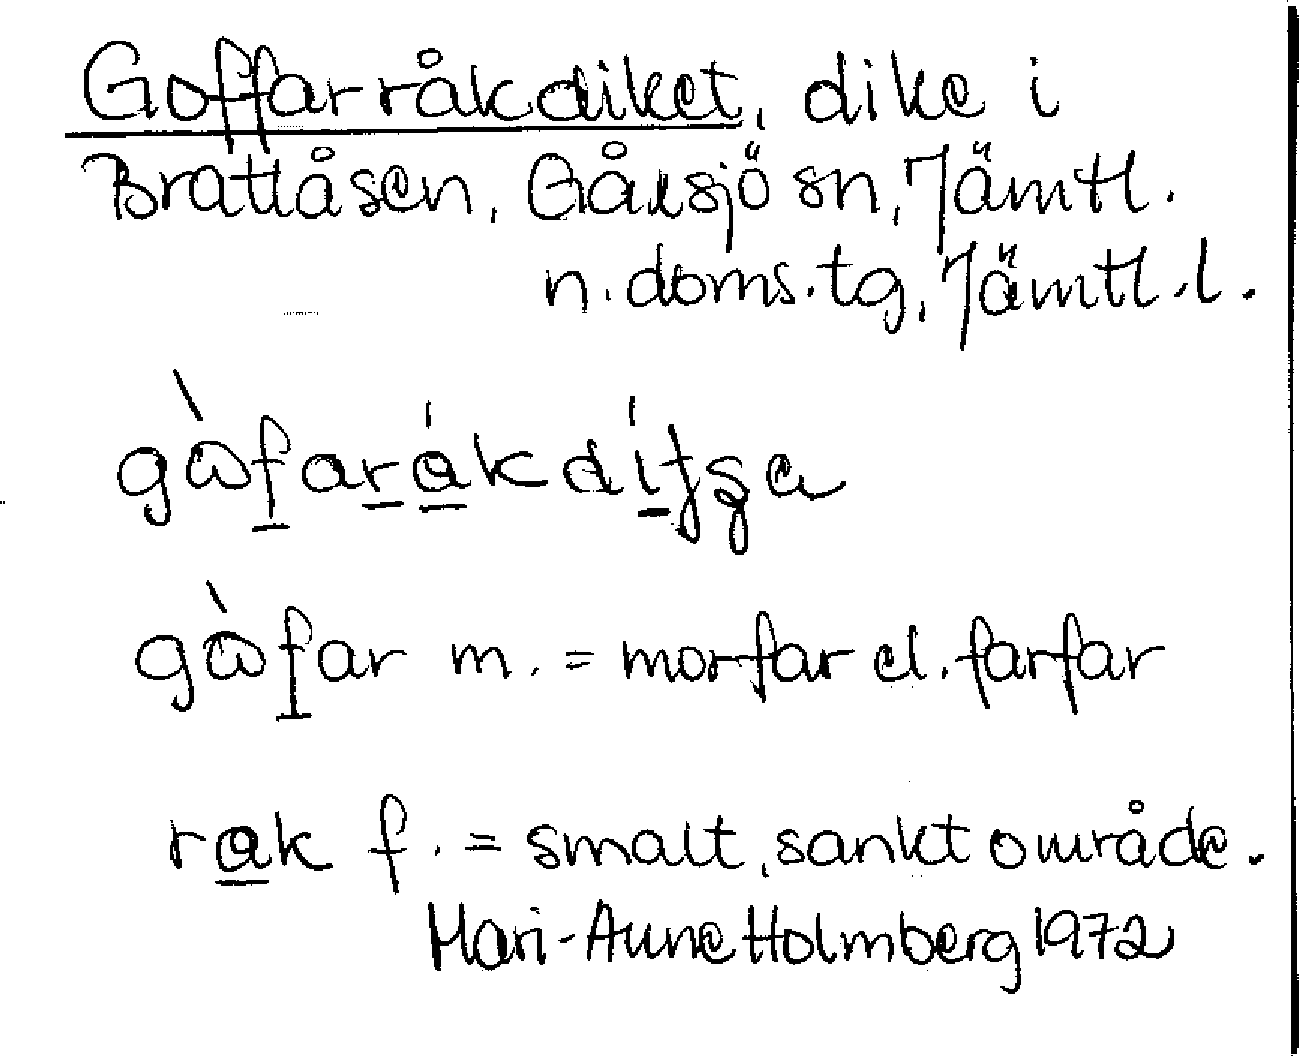 Goffarråkdiket, dike i
Brattåsen, Gåxsjö sn, Jämtl.
n. doms. tg, Jämtl. l.
gòfarákdítʂa
gòfar m. = morfar el. farfar
rak f. = smalt, sankt område.
Mari-Anne Holmberg 1972